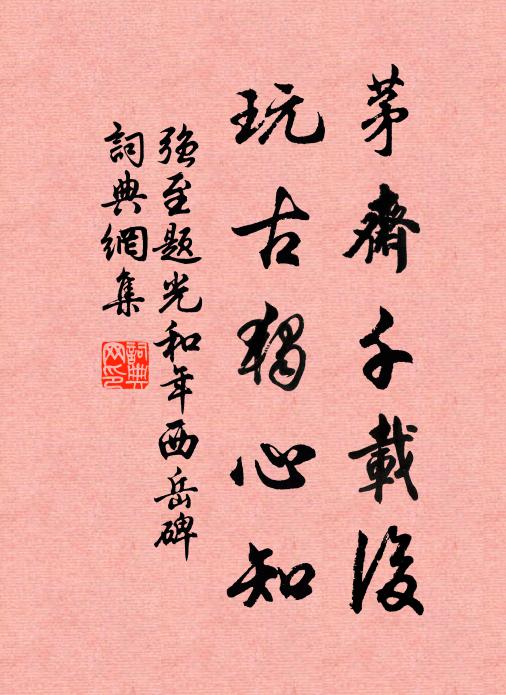 茅齋千載後
玩古獨心知
強至題光和年西岳碑
詞典網集
詞典網印